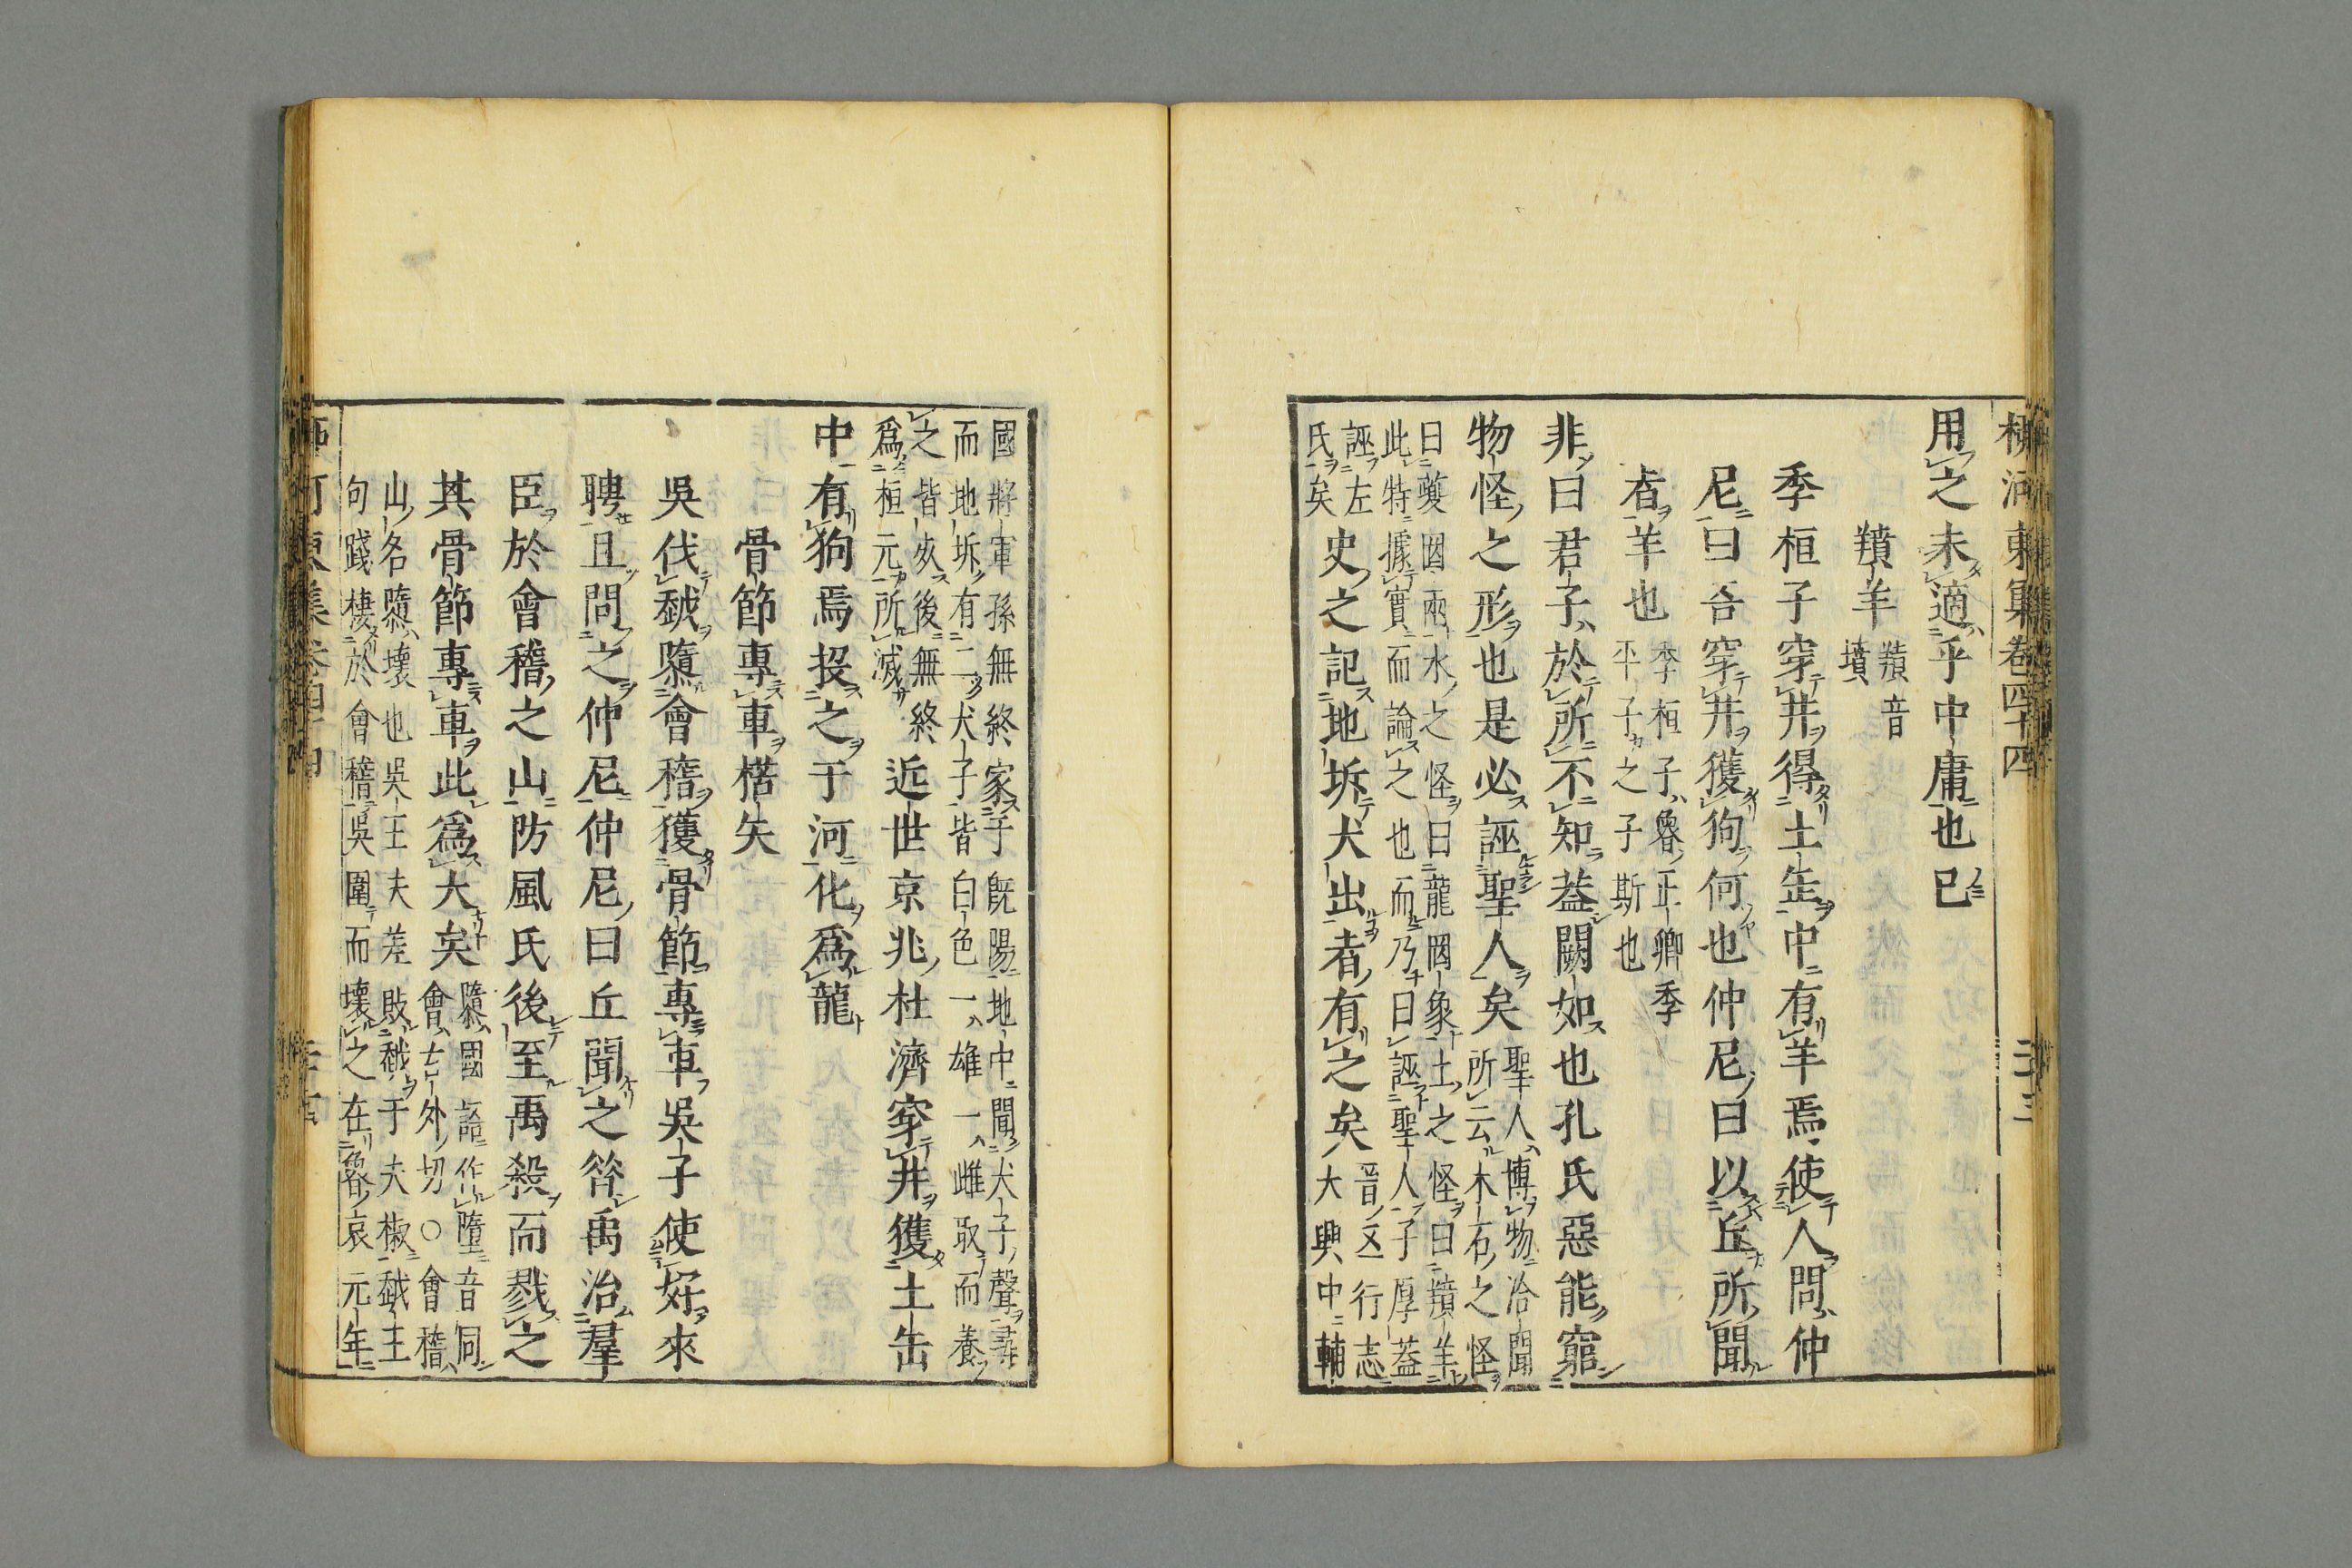 柳河東集卷四十四
用之未適乎中庸也已
羵羊 羵音
墳
季桓子穿井得土缶中有羊焉使人問仲
尼曰吾穿井獲狗何也仲尼曰以丘所聞
者羊也 季桓子魯正卿季
平子之子斯也
非曰君子於所不知蓋闕如也孔氏惡能窮
物怪之形也是必誣聖人矣 聖人博物洽聞
所云木石之怪
曰夔罔兩水之怪曰龍罔象土之怪曰羵羊
此特據實而論之也而乃曰誣聖人子厚蓋
誣左
氏矣 史之記地坼犬出者有之矣 晉五行志
大興中輔
國將軍孫無終家于旣陽地中聞犬子聲尋
而地坼有二犬子皆白色一雄一雌取而養
之皆死後無終
爲桓元所滅 近世京兆杜濟穿井獲土缶
中有狗焉投之于河化爲龍
骨節專車楛矢
吳伐越隳會稽獲骨節專車吳子使好來
聘且問之仲尼仲尼曰丘聞之昝禹治羣
臣於會稽之山防風氏後至禹殺而戮之
其骨節專車此爲大矣 隳國語作墮音同
會古外切○會稽
山名隳壞也吳王夫差敗越于夫椒越王
句踐棲於會稽吳圍而壞之在魯哀元年